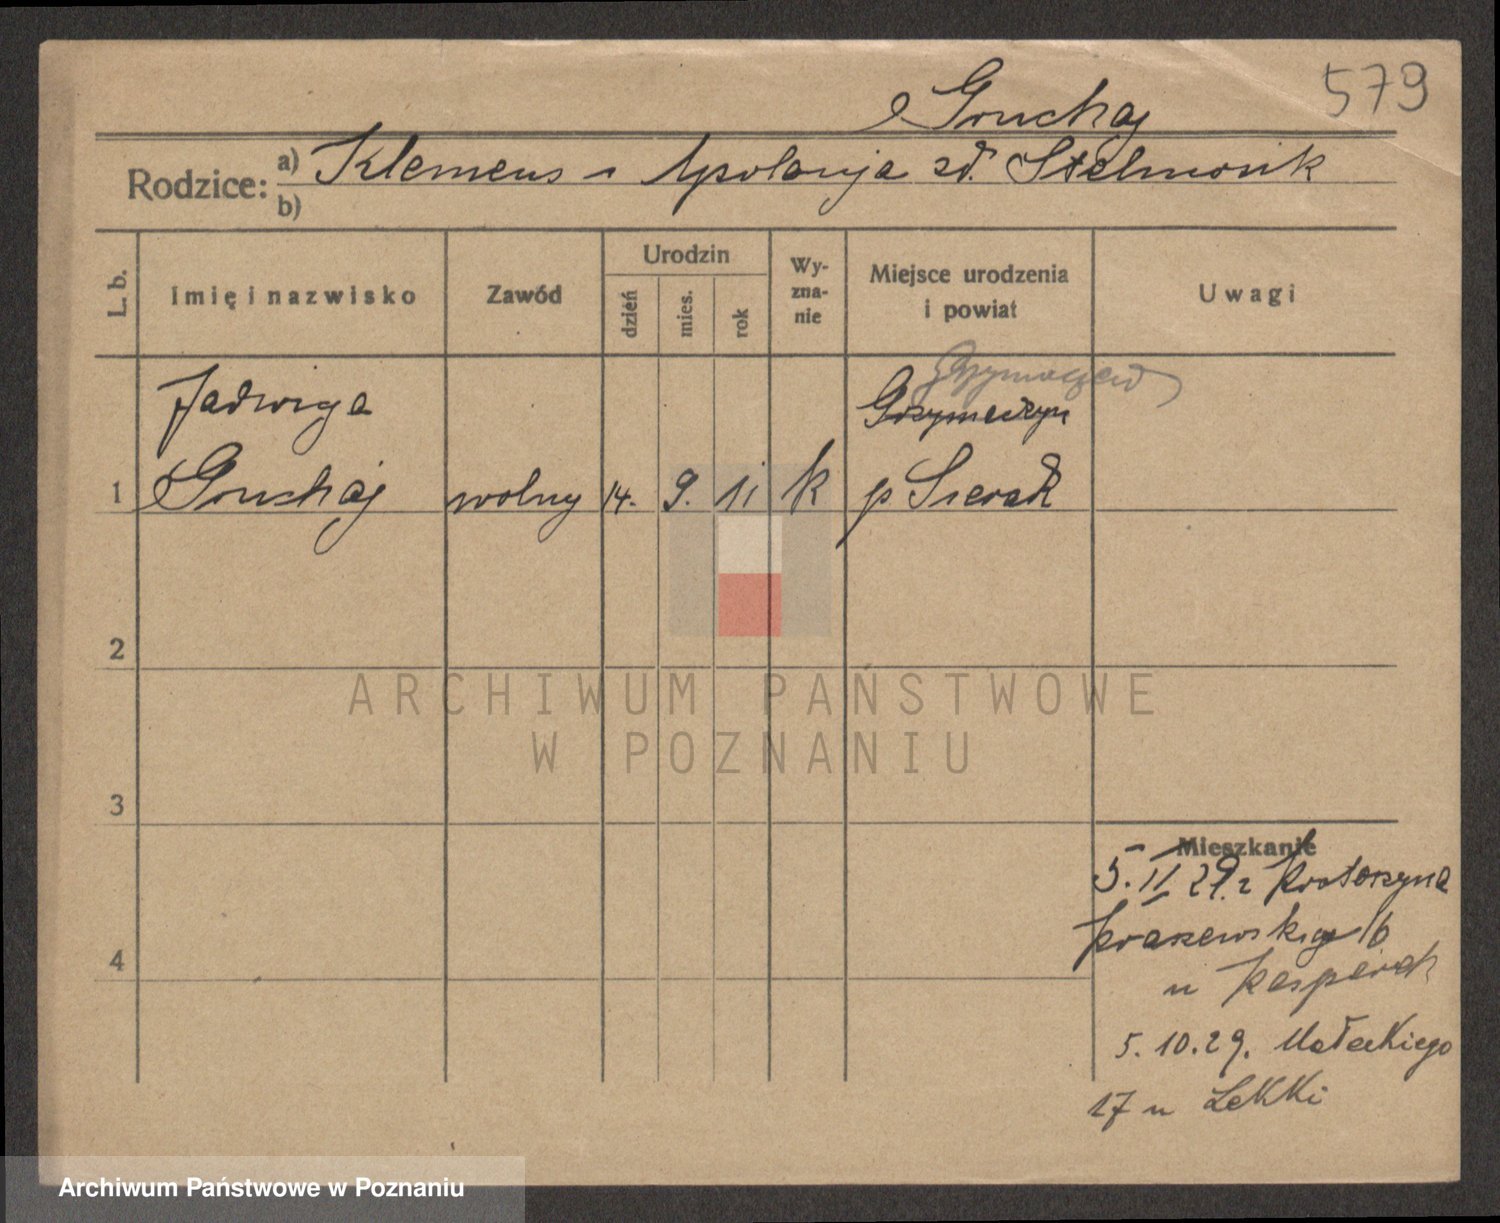 579
Gruchaj
Rodzice: a) Klemens i Apolonja zd. Stelmasik
b)
L. b.
Imię i nazwisko
Zawód
Urodzin
dzień
mies.
rok
Wy-
zna-
nie
Miejsce urodzenia
i powiat
Uwagi
Grzymaczew
Jadwiga
Grzymaczyn
1 Gruchaj wolny 14. 9. 11 k p Sieradz
2
ARCHIWUM PAŃSTWOWE
W POZNANIU
3
Mieszkanie
5. II 29. z Krotoszyna
Kraszewskiego 16
4
u Kasperek
5. 10. 29. Małeckiego
17 u Lekki
Archiwum Państwowe w Poznaniu